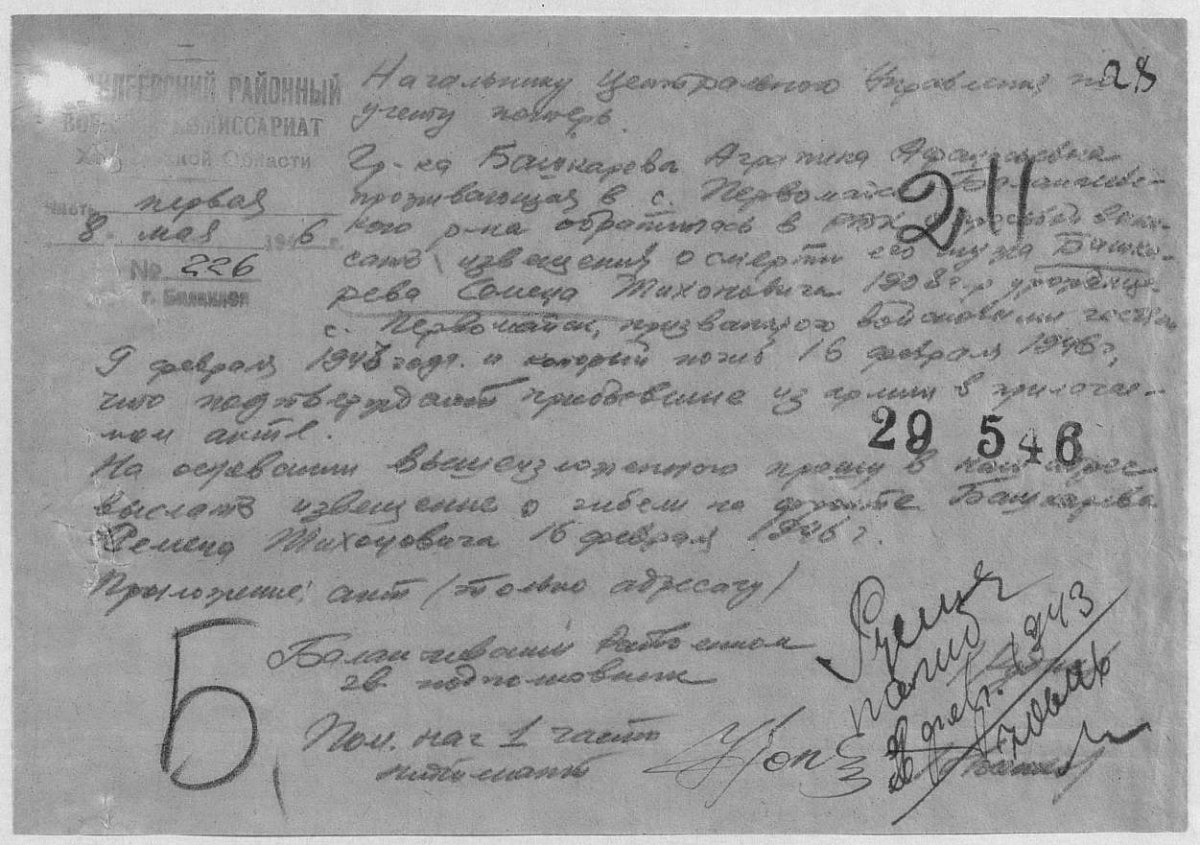 РАЙОННЫЙ
КОМИССАРИАТ
Области
часть первая
8 мая 1946 г.
№ 226
г. Балаклея
28
Начальнику Центрального Управления по
учету потерь.
Гр-ка Башкарева Агрипина
проживающая в с. Первомайск Балаклеевс-
кого р-на обратилась в РВК с просьбой выпи-
сать извещения о смерти его мужа Башка-
рева Семена Тихоновича 1908 г.р. уроженца
с. Первомайск, призванного войсковыми частями
9 февраля 1943 года и который погиб 16 февраля 1946 г,
что подтверждают прибывшие из армии в прилагае-
мом акте.
211
29 5 46
На основании вышеизложенного прошу в наш адрес
выслать извещение о гибели на фронте Башкарева
Семена Тихоновича 16 февраля 1946 г.
Приложение: акт (только адресату)
Б
Балаклеевский Райвоенком
гв. подполковник
Пом. нач 1 части
погиб
февр. 1943